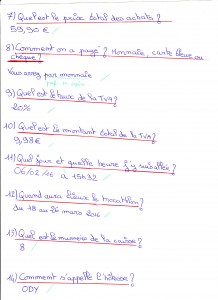 7) Quel est le prix total des achats ?
59,90 €
8) Comment on a payé ? Monnaie, carte bleue ou
chèque ?
Vous avez par monnaie
9) Quel est le taux de la TVA ?
20%
10) Quel est le montant total de la TVA ?
9,98 €
11) Quel jour et quelle heure j'y suis allée ?
06/02/16 à 15h32
12) Quand aura lieu le trocathlon ?
Du 18 au 26 mars 2016
13) Quel est le numero de la caisse ?
8
14) Comment s'appelle l'hôtesse ?
ODY